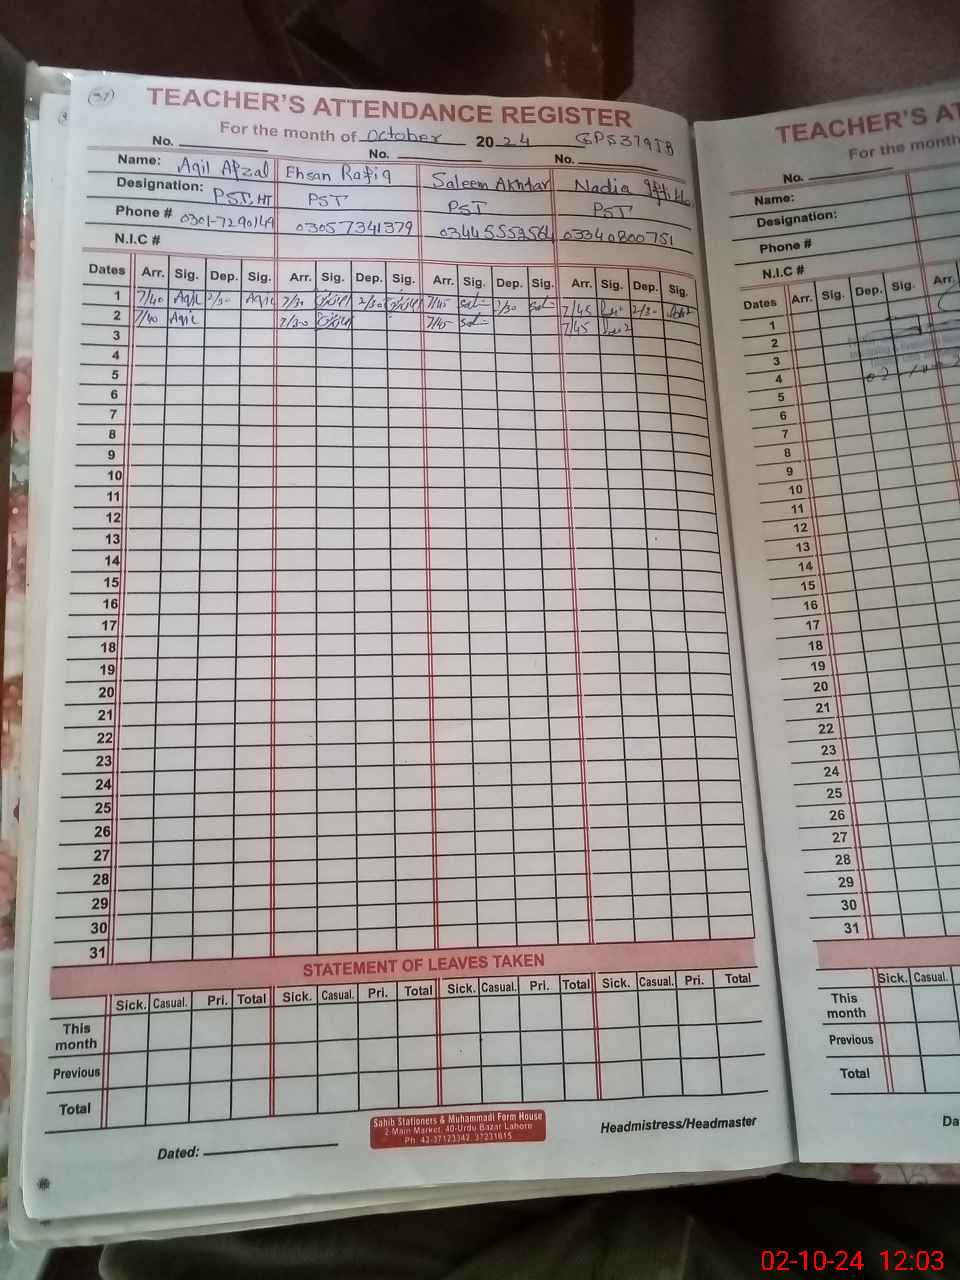 37
TEACHER'S ATTENDANCE REGISTER
For the month of October 2024 GPS379JB
No. No. No.
Name: Aqil Afzal Ehsan Rafiq Saleem Akhtar Nadia
Designation: PST, HT PST PST PST
Phone # 0301-7290149 03057341379 03445553564 03340800751
N.I.C #
Dates Arr. Sig. Dep. Sig. Arr. Sig. Dep. Sig. Arr. Sig. Dep. Sig. Arr. Sig. Dep. Sig.
1 7/40 Aqil 2/30 Aqil 7/30 2/30 7/45 2/30 7/45 2/30
2 7/40 Aqil 7/30 7/45 7/45
3
4
5
6
7
8
9
10
11
12
13
14
15
16
17
18
19
20
21
22
23
24
25
26
27
28
29
30
31
STATEMENT OF LEAVES TAKEN
Sick. Casual. Pri. Total Sick. Casual. Pri. Total Sick. Casual. Pri. Total Sick. Casual. Pri. Total
This month
Previous
Total
Dated:
Sahib Stationers & Muhammadi Form House
2-Main Market, 40-Urdu Bazar Lahore
Ph: 42-37123342, 37231615
Headmistress/Headmaster
TEACHER'S AT
For the month
No.
Name:
Designation:
Phone #
N.I.C #
Dates Arr. Sig. Dep. Sig. Arr.
1
2
3
4
5
6
7
8
9
10
11
12
13
14
15
16
17
18
19
20
21
22
23
24
25
26
27
28
29
30
31
Sick. Casual
This month
Previous
Total
Da
02-10-24 12:03